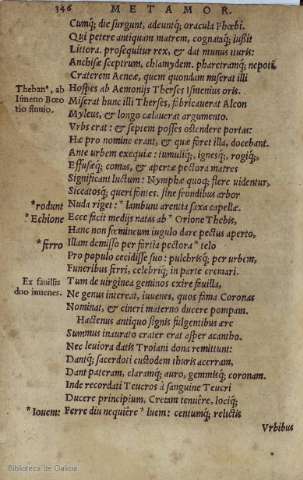 346 METAMOR.
Cumq; die surgunt, adeuntq; oracula Phœbi.
Qui petere antiquam matrem, cognataq; iussit
Littora. prosequitur rex, & dat munus ituris:
Anchisæ sceptrum, chlamydem. pharetramq; nepoti,
Craterem Aeneæ, quem quondam miserat illi
Theban⁹, ab Hospes ab Aemonijs Therses Ismenius oris.
Ismeno Bœo Miserat hunc illi Therses, fabricauerat Alcon
tio fluuio. Myleus, & longo cælauerat argumento.
Vrbs erat: & septem posses ostendere portas:
Hæ pro nomine erant, & quæ foret illa, docebant.
Ante urbem exequiæ: tumuliq;, ignesq;, rogiq;,
Effusæq; comas, & apertæ pectora matres
Significant luctum: Nymphæ quoq; flere uidentur,
Siccatosq; queri fontes. sine frondibus arbor
*rodunt Nuda riget: *lambunt arentia saxa capellæ.
*Echione Ecce facit medijs natas ab *Orione Thebis,
Hanc non fœmineum iugulo dare pectus aperto,
*ferro Illam demisso per fortia pectora *telo
Pro populo cecidisse suo: pulchrisq; per urbem,
Funeribus ferri, celebriq; in parte cremari.
Ex fauillis Tum de uirginea geminos exire fauilla,
duo iuuenes. Ne genus intereat, iuuenes, quos fama Coronas
Nominat, & cineri materno ducere pompam.
Hactenus antiquo signis fulgentibus ære
Summus inaurato crater erat asper acantho.
Nec leuiora datis Troiani dona remittunt:
Dantq; sacerdoti custodem thuris acerram,
Dant pateram, claramq; auro, gemmisq; coronam.
Inde recordati Teucros à sanguine Teucri
Ducere principium, Cretan tenuêre, lociq;
*Iouem: Ferre diu nequiêre *luem: centumq; relictis
Vrbibus
Biblioteca de Galicia